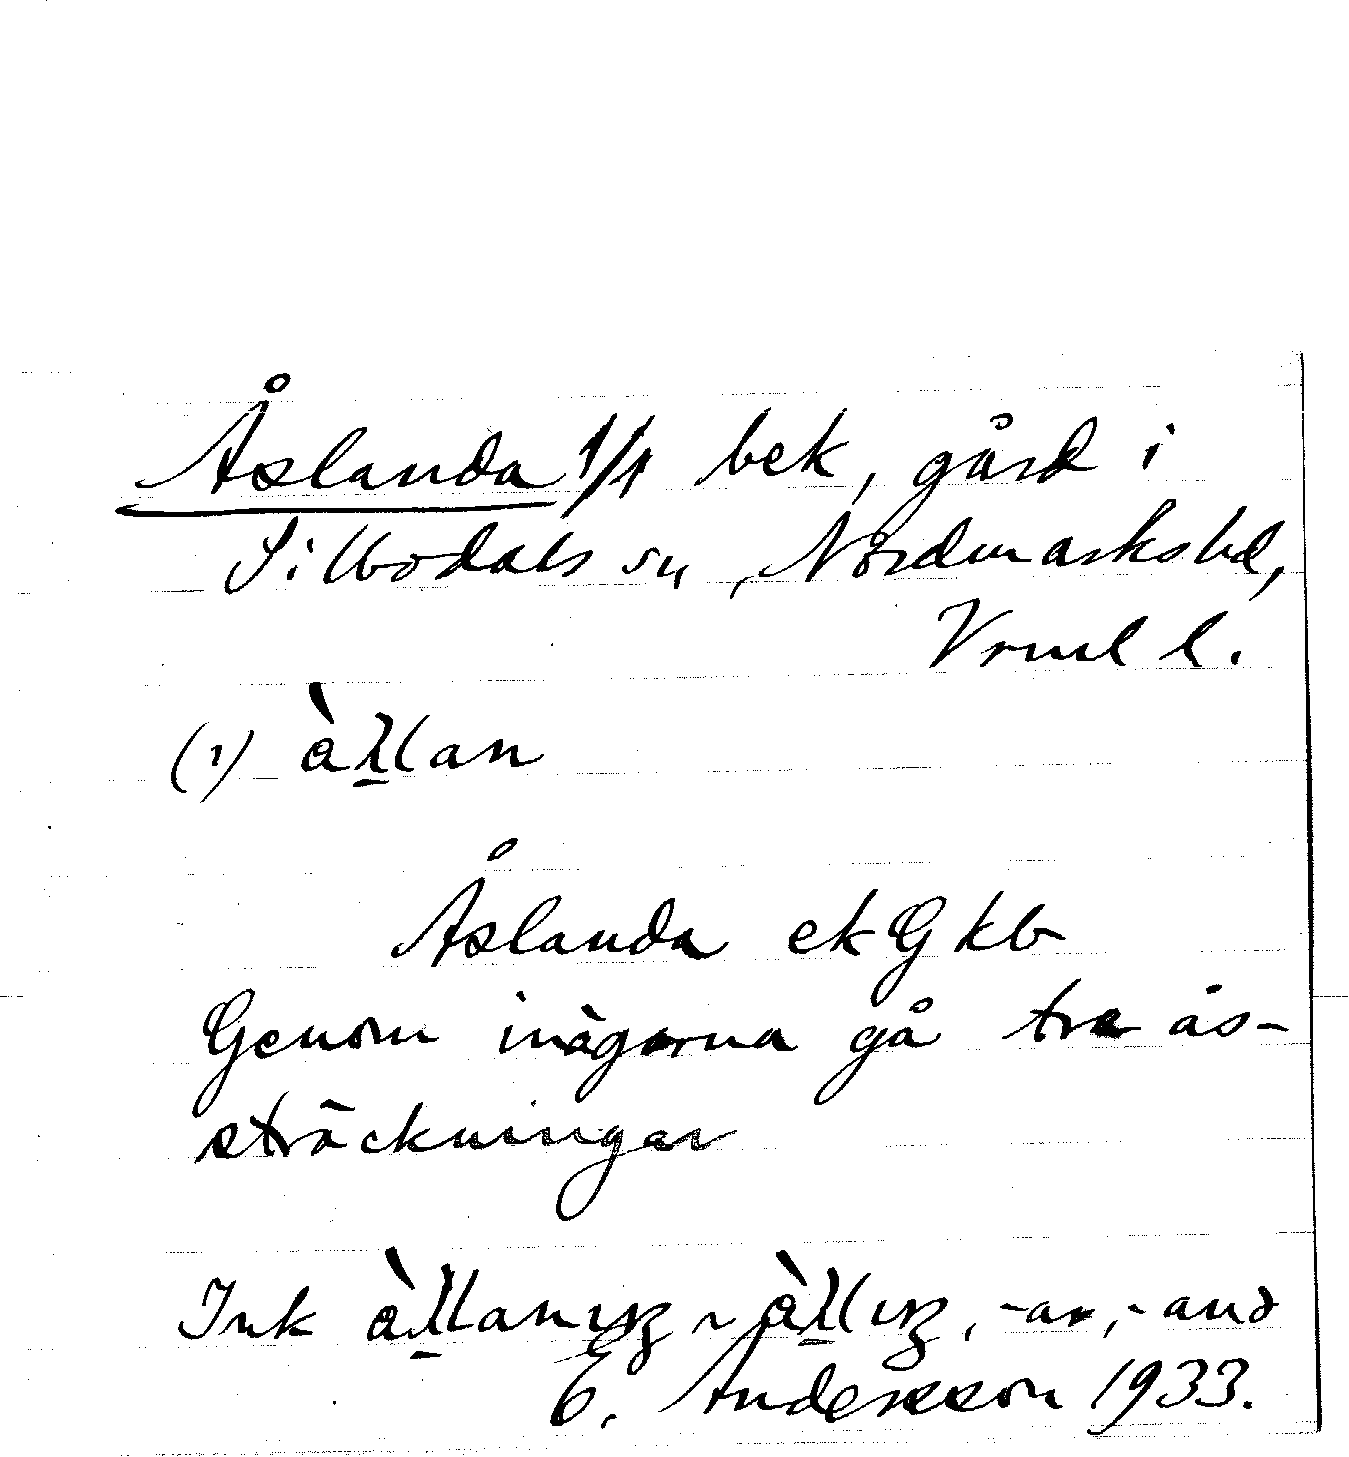 Åslanda 1/1 bek, gård i
Silbodals sn, Nordmarks hd,
Vrml l.
(1) àl̠lan
Åslanda ek G kb
Genom inägorna gå tre ås-
sträckningar
Ink ~ , -ar, -and
E. Andersson 1933.